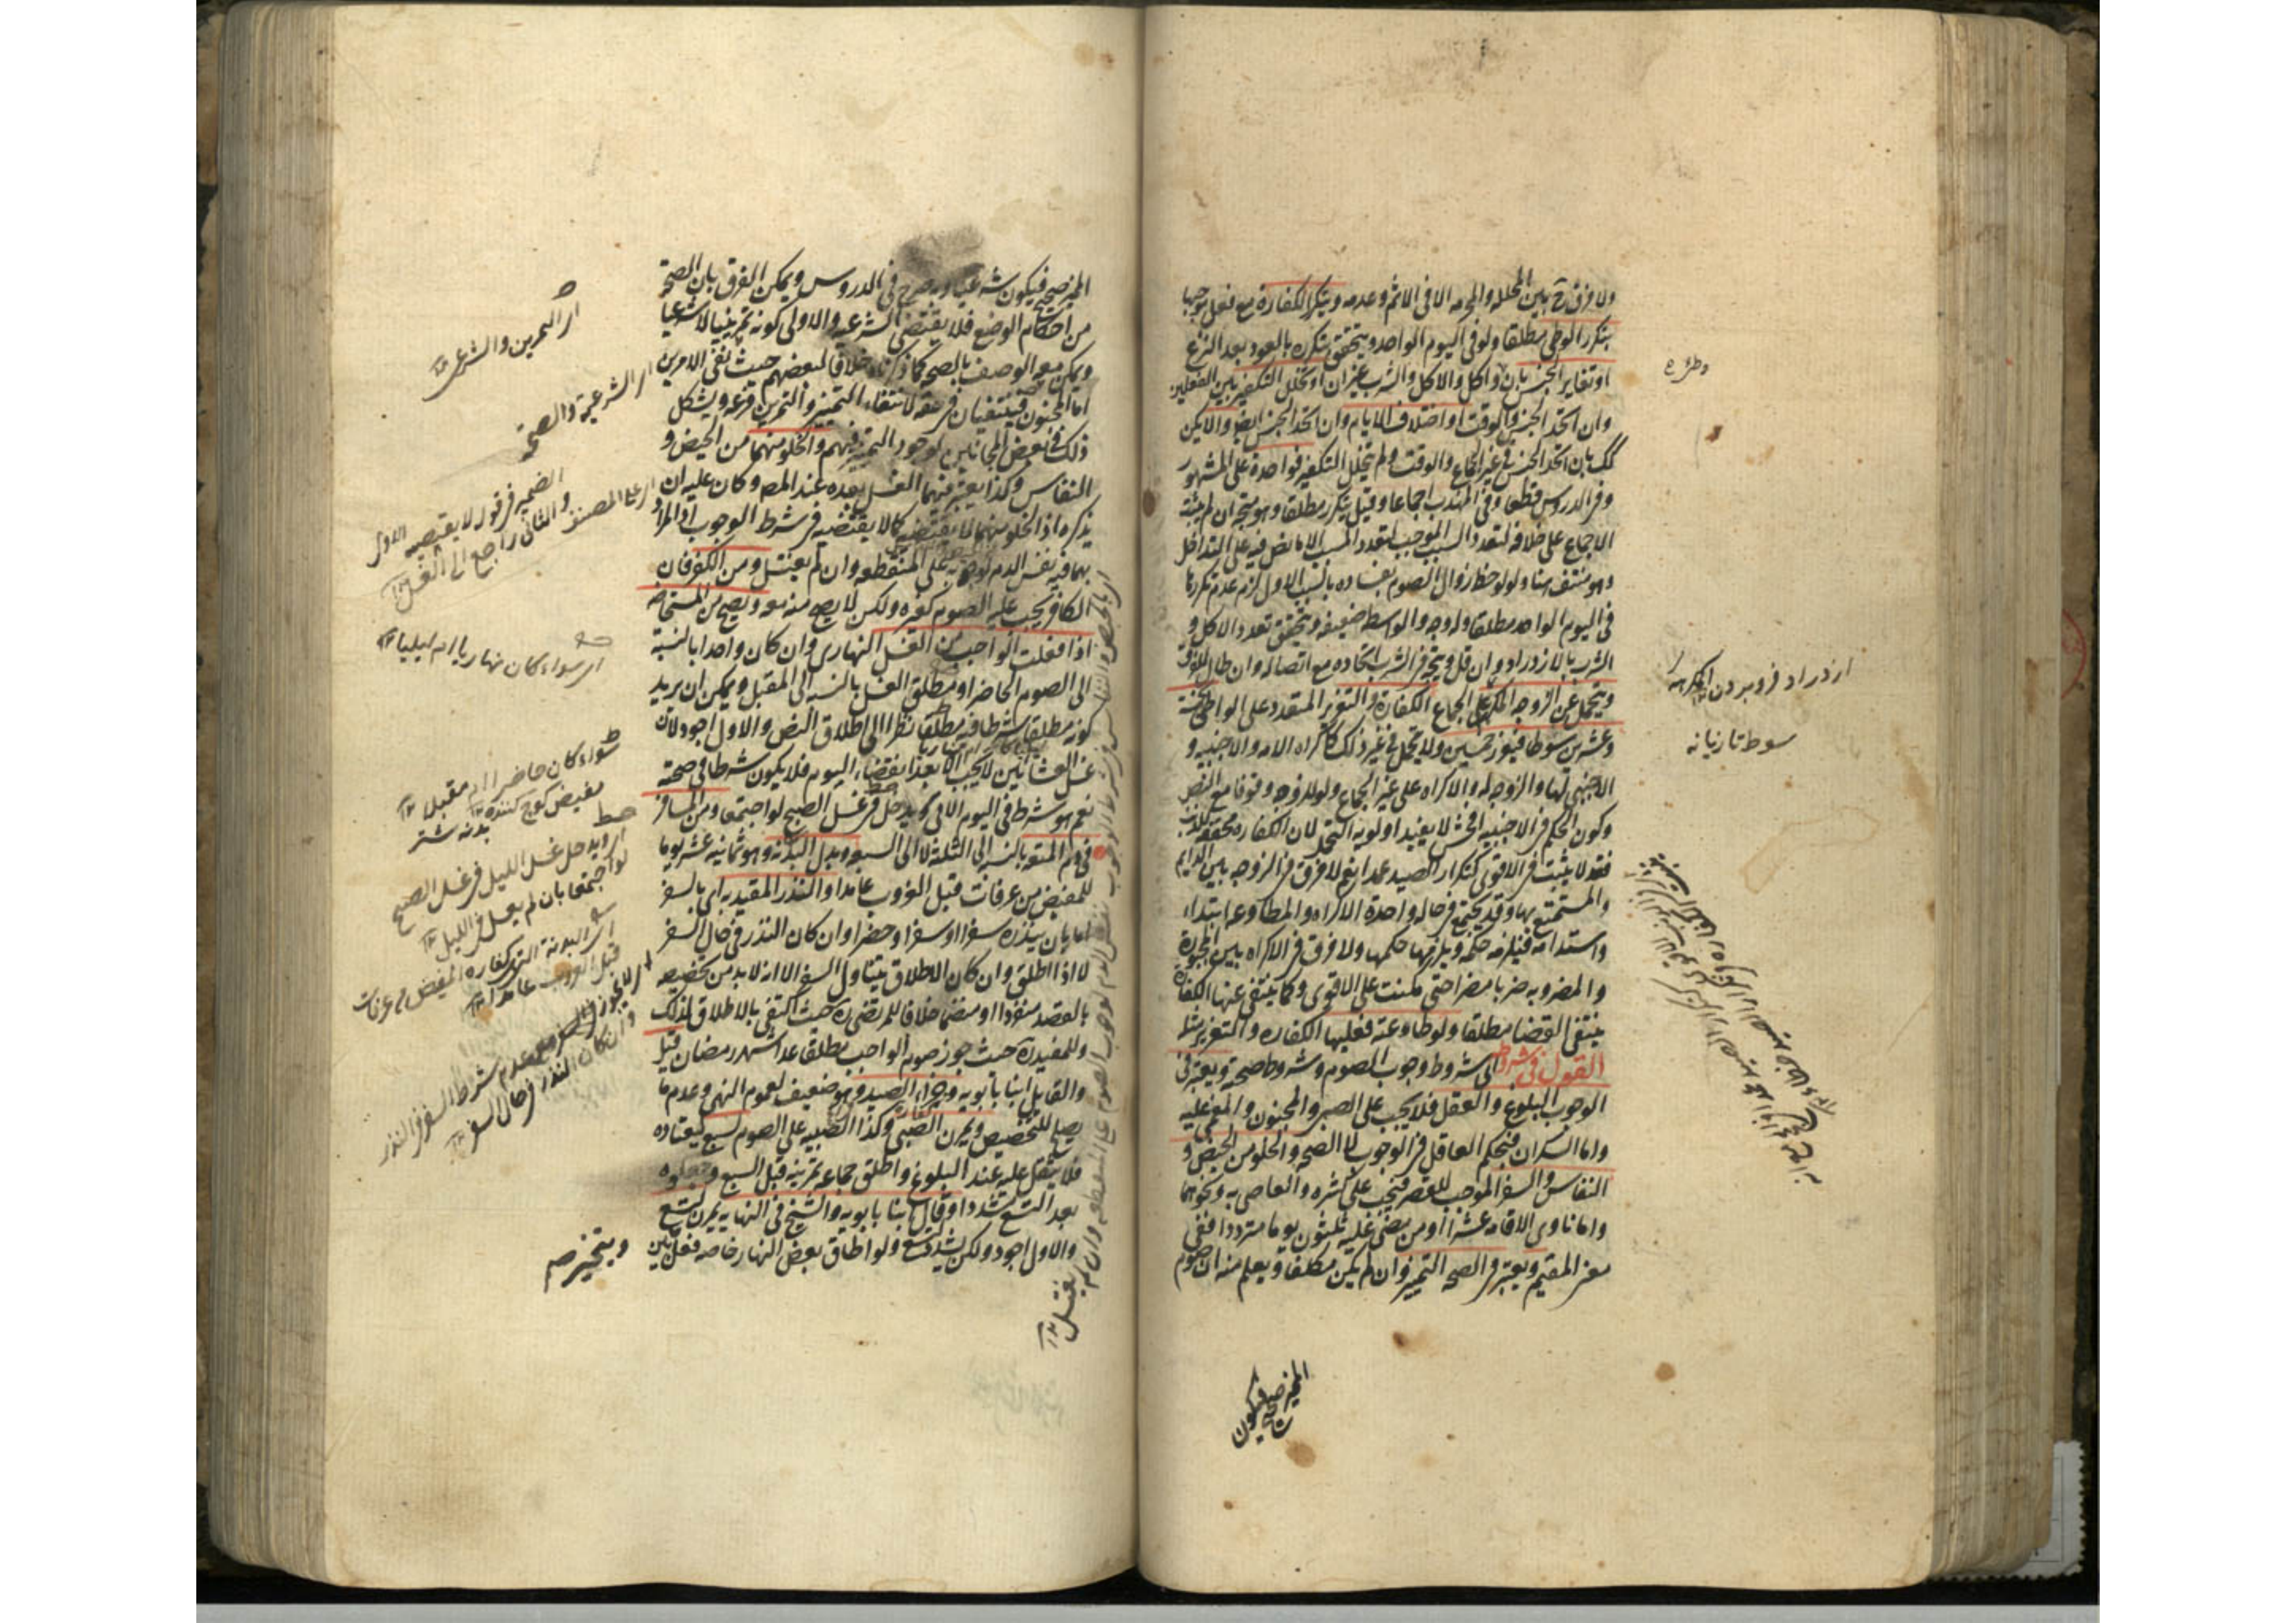 ولا فرق ح بين المحلله والمحرمه الا فى الاثم وعدمه ويتكرر الكفارة مع فعل موجبها
بتكرر الوطى مطلقا ولو فى اليوم الواحد ويتحقق تكرره بالعود بعد النزع
او تغاير الجنس بان واكل والاكل والشرب غيران او تخلل التكفير بين الفعلين
وان اتحد الجنس والوقت او اختلاف الايام وان اتحد الجنس ايض والا يكن
كك بان اتحد الجنس فى غير الجماع والوقت ولم يتخلل التكفير فواحدة على المشهور
وفى الدروس قطعا وفى المهذب اجماعا وقيل يتكرر مطلقا وهو متجه ان لم يثبت
الاجماع على خلافه لتعدد السبب الموجب لتعدد المسبب الا ما نص فيه على التداخل
وهو منتف هنا ولو لوحظ زوال الصوم بفساده بالسبب الاول لزم عدم تكررها
فى اليوم الواحد مطلقا وله وجه والواسطه ضعيفه ويتحقق تعدد الاكل و
الشرب بالازدراد وان قل ويتجه فى الشرب اتحاده مع اتصاله وان طال للعرف
ويتحمل عن الزوجه المكرهه على الجماع الكفارة والتعزير المقدر على الواطى بخمسة
وعشرين سوطا فيعزر خمسين ولا تحمل فى غير ذلك كاكراه الامه والاجنبيه و
الاجنبى لهما والزوجه له والاكراه على غير الجماع ولو للزوجه وقوفا مع النص
وكون الحكم فى الاجنبيه افحش لا يفيد اولويه التحمل لان الكفاره مخففه للذنب
فقد لا يثبت فى الاقوى كتكرار الصيد عمدا نعم لا فرق فى الزوجه بين الدايم
والمستمتع بها وقد يجتمع فى حاله واحدة الاكراه والمطاوعه ابتداء
واستدامه فيلزمه حكمه ويلزمها حكمها ولا فرق فى الاكراه بين المجبورة
والمضروبه ضربا مضرا حتى مكنت على الاقوى وكما ينتفى عنها الكفارة
ينتفى القضا مطلقا ولو طاوعته فعليها الكفاره والتعزير مثله
القول فى شروطه اى شروط وجوب الصوم وشروط صحته ويعتبر فى
الوجوب البلوغ والعقل فلا يجب على الصبى والمجنون والمغمى عليه
واما السكران فبحكم العاقل فى الوجوب لا الصحه والخلو من الحيض و
النفاس والسفر الموجب للقصر فيجب على كثيره والعاصى به ونحوهما
واما ناوى الاقامه عشرا او من مضى عليه ثلثون يوما مترددا ففى
معنى المقيم ويعتبر فى الصحه التمييز وان لم يكن مكلفا ويعلم منه ان صوم
المميز صحيح فيكون
ازدراد فرو بردن
سوط تازيانه
المميز صحيح فيكون شرعيا وبه صرح فى الدروس ويمكن الفرق بان الصحة
من احكام الوضع فلا يقتضى الشرعيه والاولى كونه تمرينيا لا شرعيا
ويمكن معه الوصف بالصحه كما ذكرناه خلافا لبعضهم حيث نفى الامرين
اما المجنون فينتفيان فى حقه لانتفاء التمييز والتمرين فرعه ويشكل
ذلك فى بعض المجانين لوجود التمييز فيهم والخلو منهما من الحيض و
النفاس وكذا يعتبر فيهما الغسل بعده عند المص وكان عليه ان
يذكره اذ الخلو منهما لا يقتضيه كما لا يقتضيه فى شرط الوجوب اذ المراد
بهما فيه نفس الدم لوجوبه على المنقطعه وان لم يغتسل ومن الكفر فان
الكافر يجب عليه الصوم كغيره ولكن لا يصح منه معه ويصح من المستحاضه
اذا فعلت الواجب من الغسل النهارى وان كان واحدا بالنسبة
الى الصوم الحاضر او مطلق الغسل بالنسبه الى المقبل ويمكن ان يريد
كونه مطلقا شرطا فيه مطلقا نظرا الى اطلاق النص والاول اجود لان
غسل العشائين لا يجب الا بعد انقضاء اليوم فلا يكون شرطا فى صحته
نعم هو شرط فى اليوم الاتى ويدخل فى غسل الصبح لو اجتمعا ومن المسافر
فى دم المتعه بالنسبه الى الثلثه لا الى السبعه وبدل البدنه وهو ثمانيه عشر يوما
للمفيض من عرفات قبل الغروب عامدا والنذر المقيد به اى بالسفر
اما بان ينذره سفرا او سفرا وحضرا وان كان النذر فى حال السفر
لا اذا اطلق وان كان الاطلاق يتناول السفر الا انه لا بد من تخصيصه
بالقصد منفردا او منضما خلافا للمرتضى ره حيث اكتفى بالاطلاق لذلك
وللمفيد ره حيث جوز صوم الواجب مطلقا عدا شهر رمضان قيل
والقايل ابنا بابويه وجزاء الصيد وهو ضعيف لعموم النهى وعدم ما
يصلح للتخصيص ويمرن الصبى وكذا الصبيه على الصوم لسبع ليعتاده
فلا يثقل عليه عند البلوغ واطلق جماعه تمرينه قبل السبع وجعلوه
بعد السبع مشددا وقال ابنا بابويه والشيخ فى النهايه يمرن لتسع
والاول اجود ولكن يشدد لتسع ولو اطاق بعض النهار خاصه فعل
اى التمرين والشرعى
اى الشرعيه والصحة
اى على المصنف
الضمير فى قوله لا يقتضيه الاول
والثانى راجع الى الغسل
اى سواء كان نهاريا ام ليليا
سواء كان حاضرا ام مقبلا
مفيض كوچ كننده
بدنه شتر
اى ويدخل غسل الليل فى غسل الصبح
لو اجتمعا بان لم يغسل فى الليل
اى البدنة التى كفاره المفيض من عرفات
قبل الغروب عامدا
وان كان النذر فى حال السفر